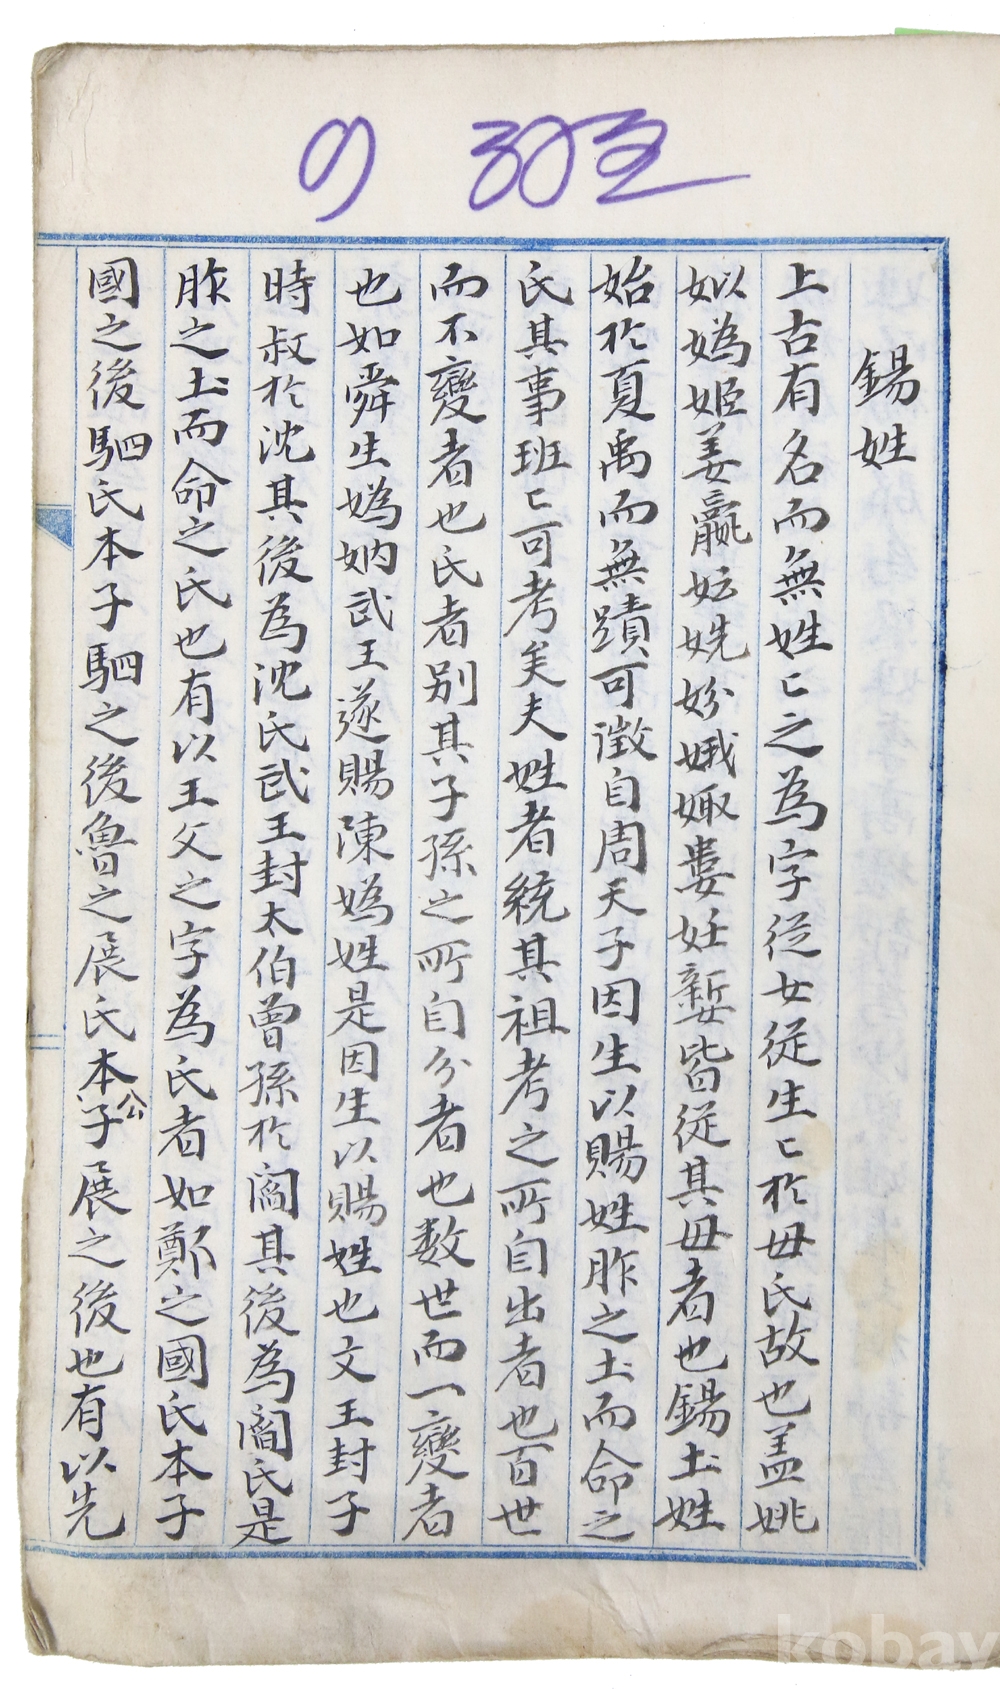 錫姓
上古有名而無姓〻之為字從女從生〻於母氏故也盖姚
姒嬀姬姜嬴妘姺妢娥娵婁妊㜪皆從其母者也錫土姓
始於夏禹而無蹟可徵自周天子因生以賜姓胙之土而命之
氏其事班〻可考矣夫姓者統其祖考之所自出者也百世
而不變者也氏者別其子孫之所自分者也数世而一變者
也如舜生嬀姠武王遂賜陳嬀姓是因生以賜姓也文王封子
時叔於沈其後為沈氏武王封太伯曾孫於閻其後為閻氏是
胙之土而命之氏也有以王父之字為氏者如鄭之國氏本子
國之後駟氏本子駟之後魯之展氏本公子展之後也有以先
kobay